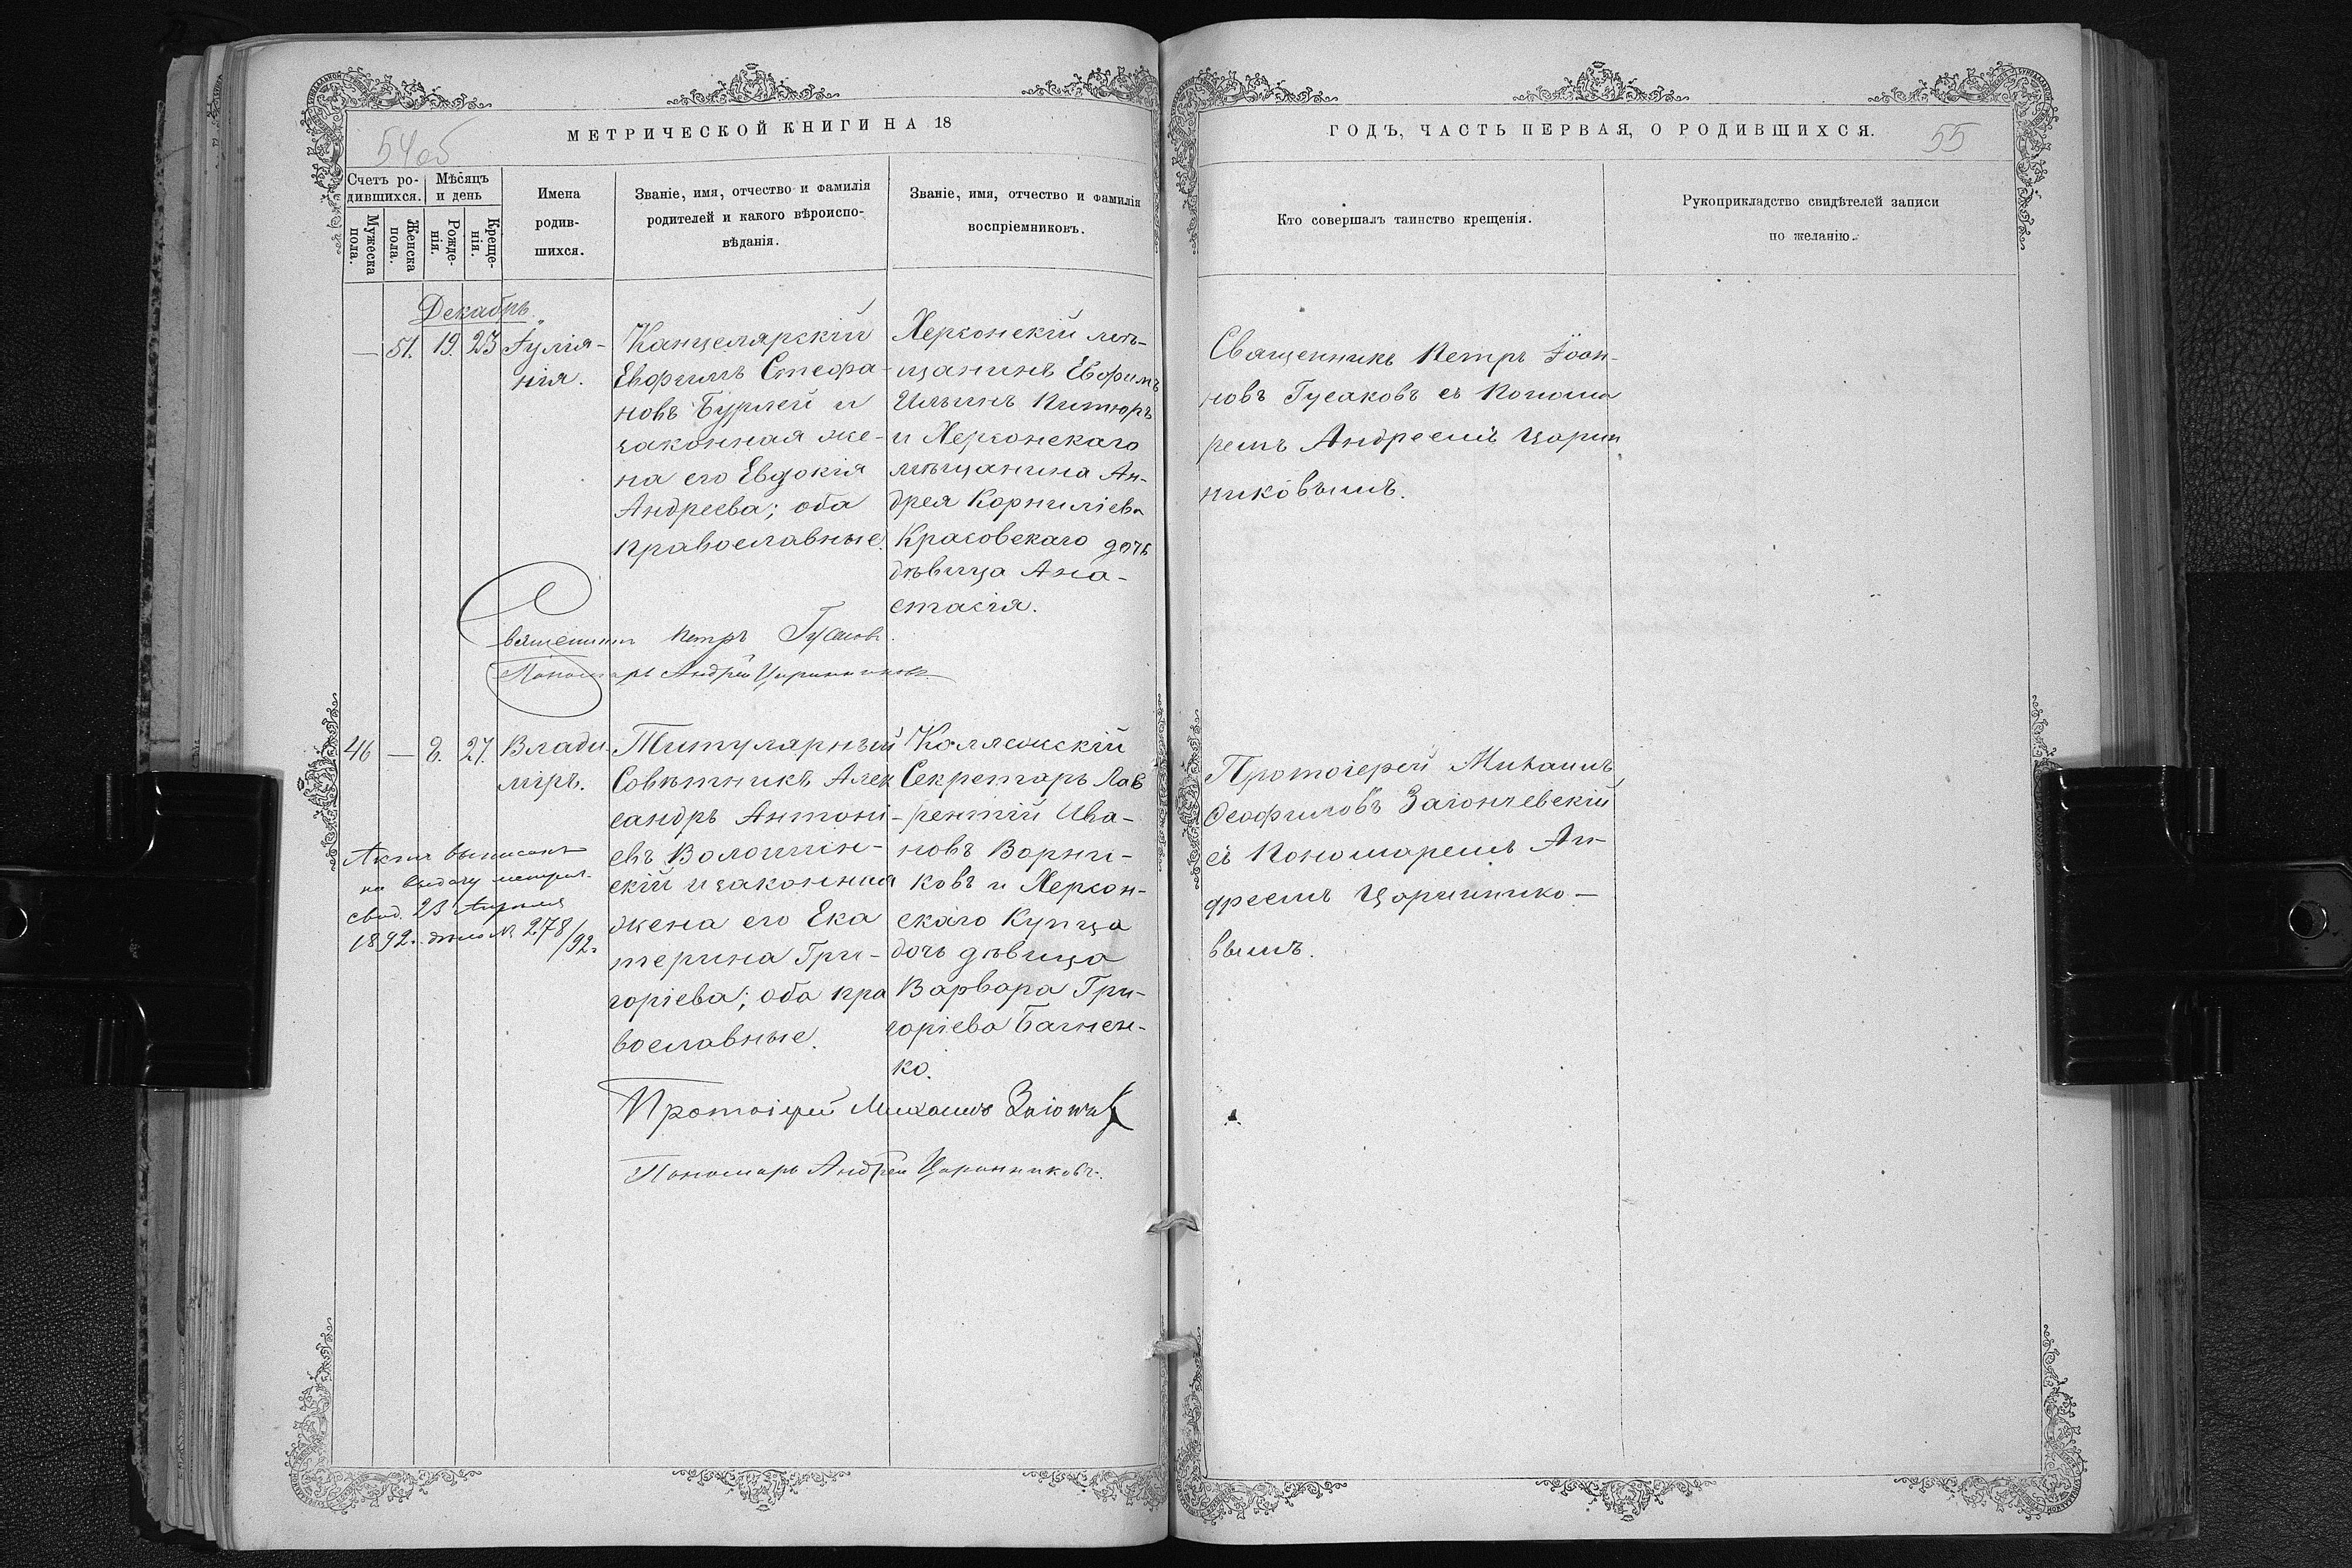 54об
МЕТРИЧЕСКОЙ КНИГИ НА 18
Счетъ ро-
дившихся.
Мужеска
пола.
Женска
пола.
Мѣсяцъ
и день
Рожде-
нія.
Креще-
нія.
Имена
родив-
шихся.
Званіе, имя, отчество и фамилія
родителей и какого вѣроиспо-
вѣданія.
Званіе, имя, отчество и фамилія
воспріемниковъ.
Декабрь.
— 51. 19. 23
Іулія-
нія.
Канцелярскій
Евфимъ Стефа-
новъ Бурлей и
законная же-
на его Евдокія
Андреева; оба
православные.
Херсонскій мѣ-
щанинъ Евфимъ
Ильинъ Питюръ
и Херсонскаго
мѣщанина Ан-
дрея Корниліева
Красовскаго дочь
дѣвица Ана-
стасія.
Священникъ Петръ Гусаковъ
Пономарь Андрей Царинниковъ
46 — 8. 27.
Влади-
міръ.
Титулярный
Совѣтникъ Алек
сандръ Антоні-
евъ Волошин-
скій и законная
жена его Ека
терина Гри-
горіева; оба пра
вославные.
Коллежскій
Секретарь Лав
рентій Ива-
новъ Ворни-
ковъ и Херсон-
скаго Купца
дочь дѣвица
Варвара Гри-
горіева Багнен-
ко.
Актъ выписанъ
на выдачу метрич.
свид. 23 Апрѣля
1892. дѣло № 278/92.
Протоіерей Михаилъ
Пономарь Андрей Царинниковъ.
ГОДЪ, ЧАСТЬ ПЕРВАЯ, О РОДИВШИХСЯ.
55
Кто совершалъ таинство крещенія.
Рукоприкладство свидѣтелей записи
по желанію.
Священникъ Петръ Іоан-
новъ Гусаковъ съ Понома
ремъ Андреемъ Царин
никовымъ.
Протоіерей Михаилъ
Ѳеофиловъ Заіончевскій
съ Пономаремъ Ан-
дреемъ Цариннико-
вымъ.